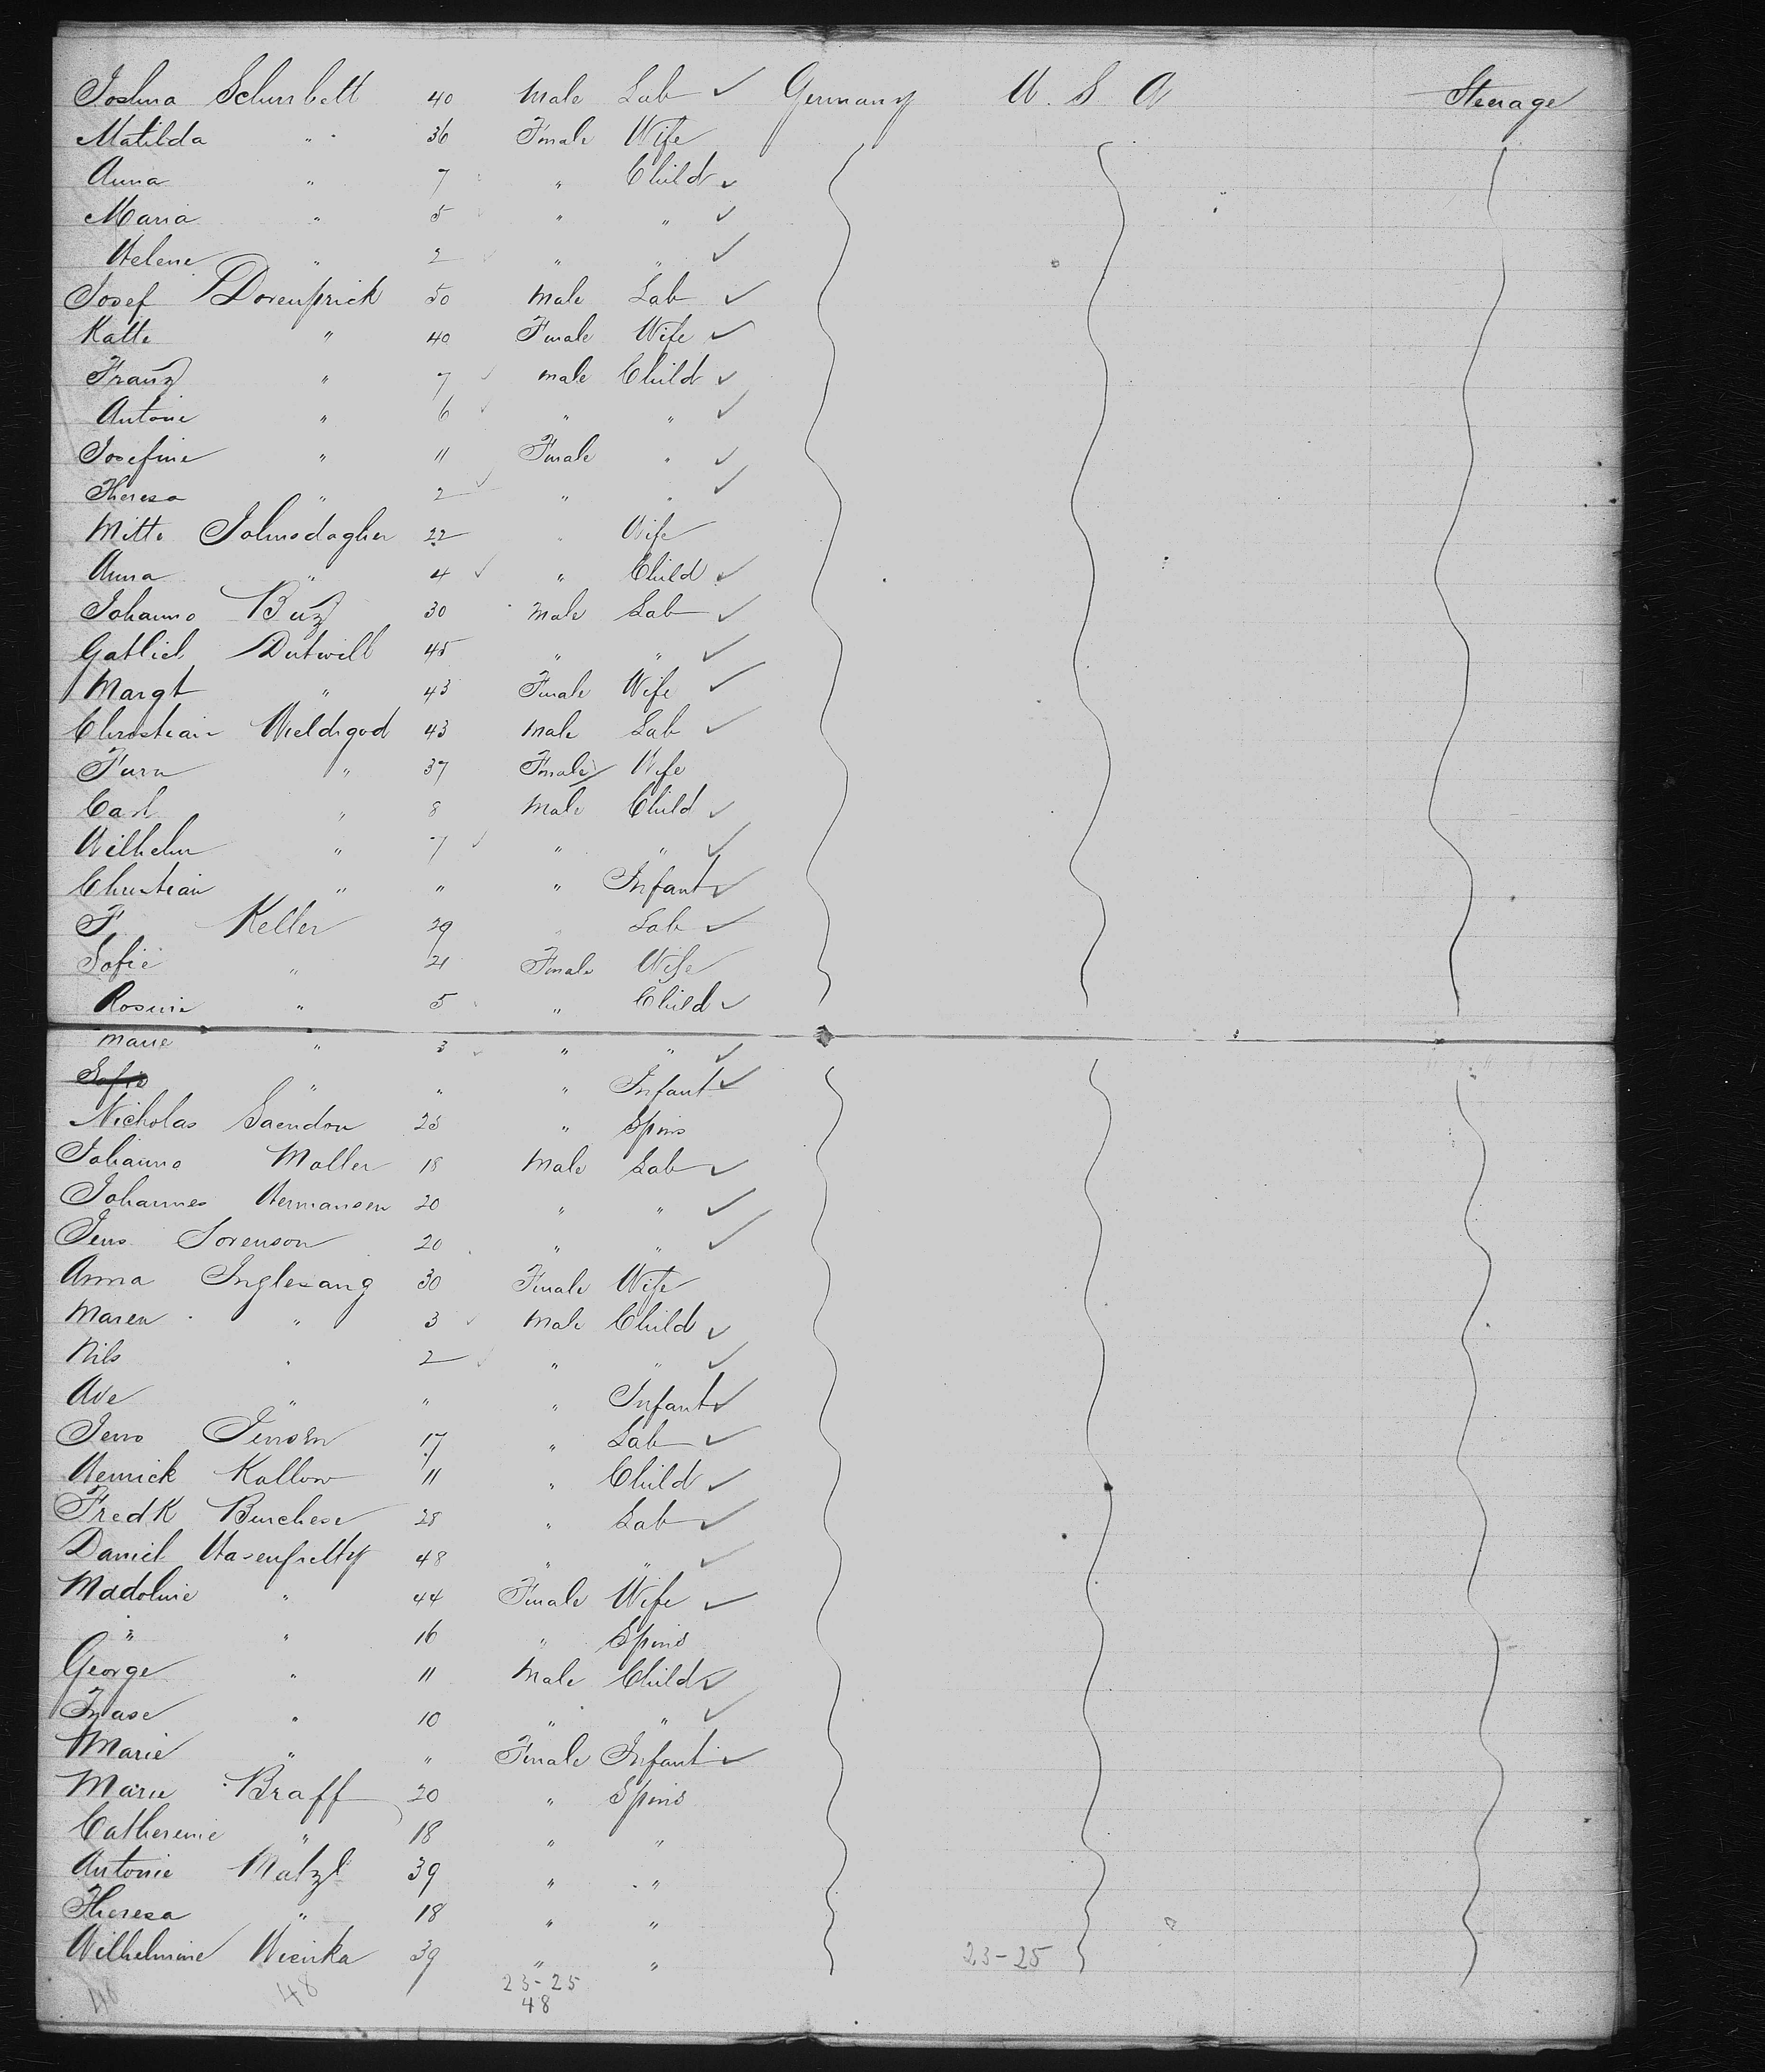 Joshua Schurrbett 40 Male Lab ✓ Germany U. S. A Steerage
Matilda " 36 Female Wife
Anna " 7 " Child ✓
Maria " 5 " " ✓
Helene " 2 " " ✓
Josef Dorenfrick 50 Male Lab ✓
Katte " 40 Female Wife ✓
Franz " 7 ✓ Male Child ✓
Antone " 6 ✓ " " ✓
Josefine " 11 Female " ✓
Theresa " 2 ✓ " " ✓
Mitte Johnsdagher 22 " Wife
Anna " 4 ✓ " Child ✓
Johanns Buz 30 Male Lab ✓
Gatlieb Dutwill 45 " " ✓
Margt " 43 Female Wife ✓
Christian Wieldigod 43 Male Lab ✓
" 37 Female Wife
Carl " 8 Male Child ✓
Wilhelm " 7 ✓ " " ✓
Christian " " " Infant ✓
F Keller 29 " Lab ✓
Sofie " 21 Female Wife
Rosine " 5 " Child ✓
Marie " 3 ✓ " " ✓
Sofie " " " Infant ✓
Nicholas Saendon 25 " Spins
Johanns Moller 18 Male Lab ✓
Johannes Hermansen 20 " " ✓
Jens Sorenson 20 " " ✓
Anna Inglesang 30 Female Wife
Maren " 3 ✓ Male Child ✓
Nils " 2 ✓ " " ✓
Ave " " " Infant ✓
Jens Jensen 17 " Lab ✓
Henrick Kallow 11 " Child ✓
Fredk Burchese 28 " Lab ✓
Daniel Hasenfultty 48 " " ✓
Madoline " 44 Female Wife ✓
" " 16 " Spins
George " 11 Male Child ✓
" 10 " " ✓
Marie " " Female Infant ✓
Marie Braff 20 " Spins
Catherine " 18 " "
Antonie Matzl 39 " "
Theresa " 18 " "
Wilhelmine Wicinka 39 " " 23-25
48 48 23-25
48